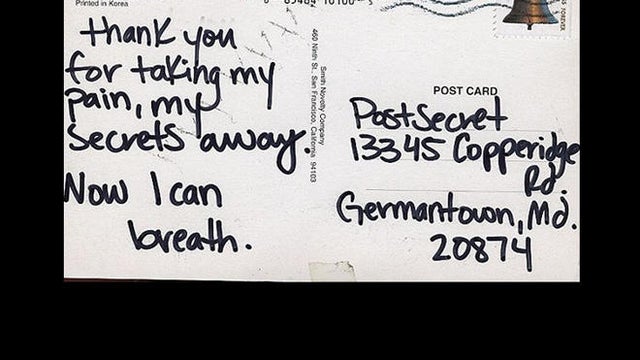 Printed in Korea
thank you
for taking my
pain, my
secrets away.
Now I can
breath.
Smith Novelty Company
460 Ninth St., San Francisco, California 94103
FOREVER
POST CARD
PostSecret
13345 Copperidge
Rd.
Germantown, Md.
20874